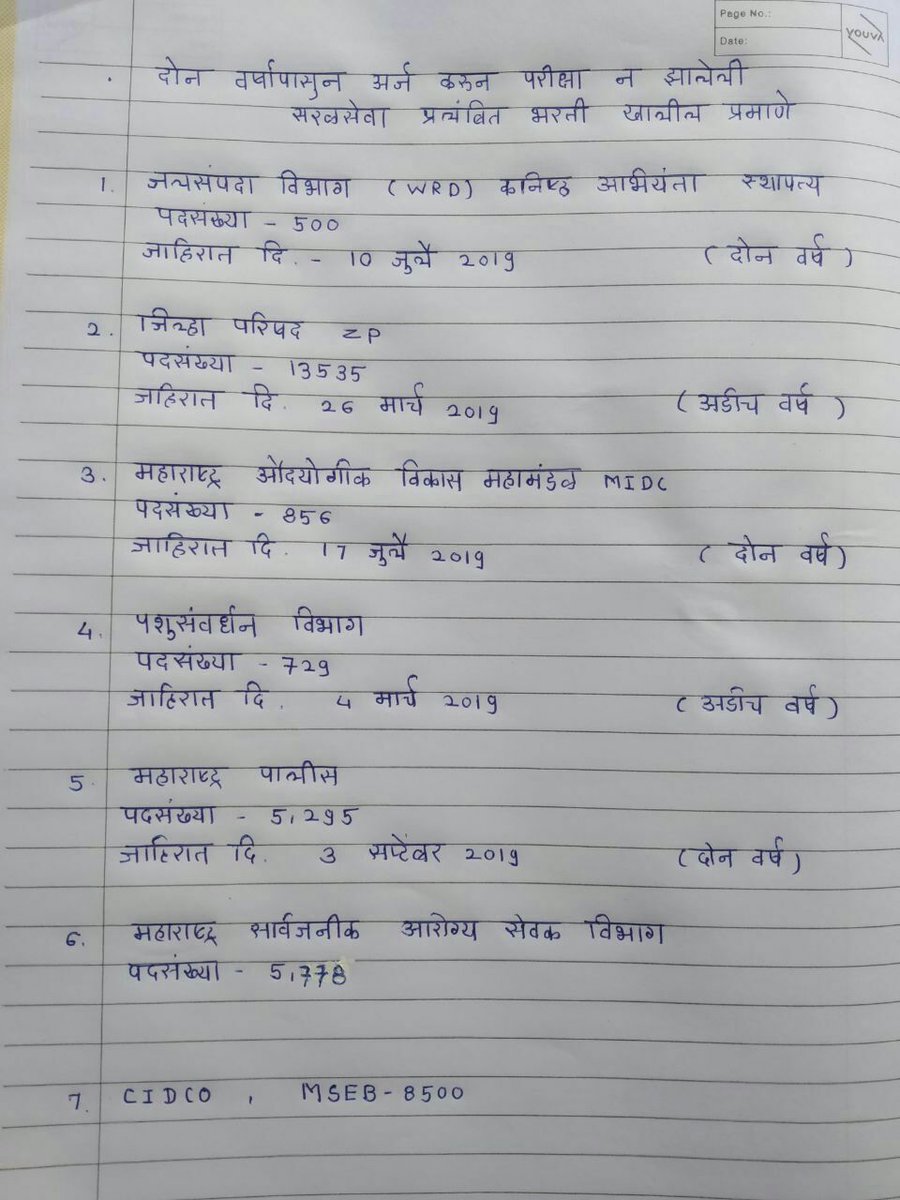 Page No.:
Date:
YOUVA
दोन वर्षापासुन अर्ज करुन परीक्षा न झालेली
सरळसेवा प्रलंबित भरती खालील प्रमाणे
1. जलसंपदा विभाग (WRD) कनिष्ठ अभियंता स्थापत्य
पदसंख्या - 500
जाहिरात दि. - 10 जुलै 2019 (दोन वर्ष)
2. जिल्हा परिषद ZP
पदसंख्या - 13535
जहिरात दि. 26 मार्च 2019 (अडीच वर्ष)
3. महाराष्ट्र औदयोगीक विकास महामंडळ MIDC
पदसंख्या - 856
जाहिरात दि. 17 जुलै 2019 (दोन वर्ष)
4. पशुसंवर्धन विभाग
पदसंख्या - 729
जाहिरात दि. 4 मार्च 2019 (अडीच वर्ष)
5. महाराष्ट्र पालीस
पदसंख्या - 5,295
जाहिरात दि. 3 सप्टेंबर 2019 (दोन वर्ष)
6. महाराष्ट्र सार्वजनीक आरोग्य सेवक विभाग
पदसंख्या - 5,778
7. CIDCO , MSEB - 8500